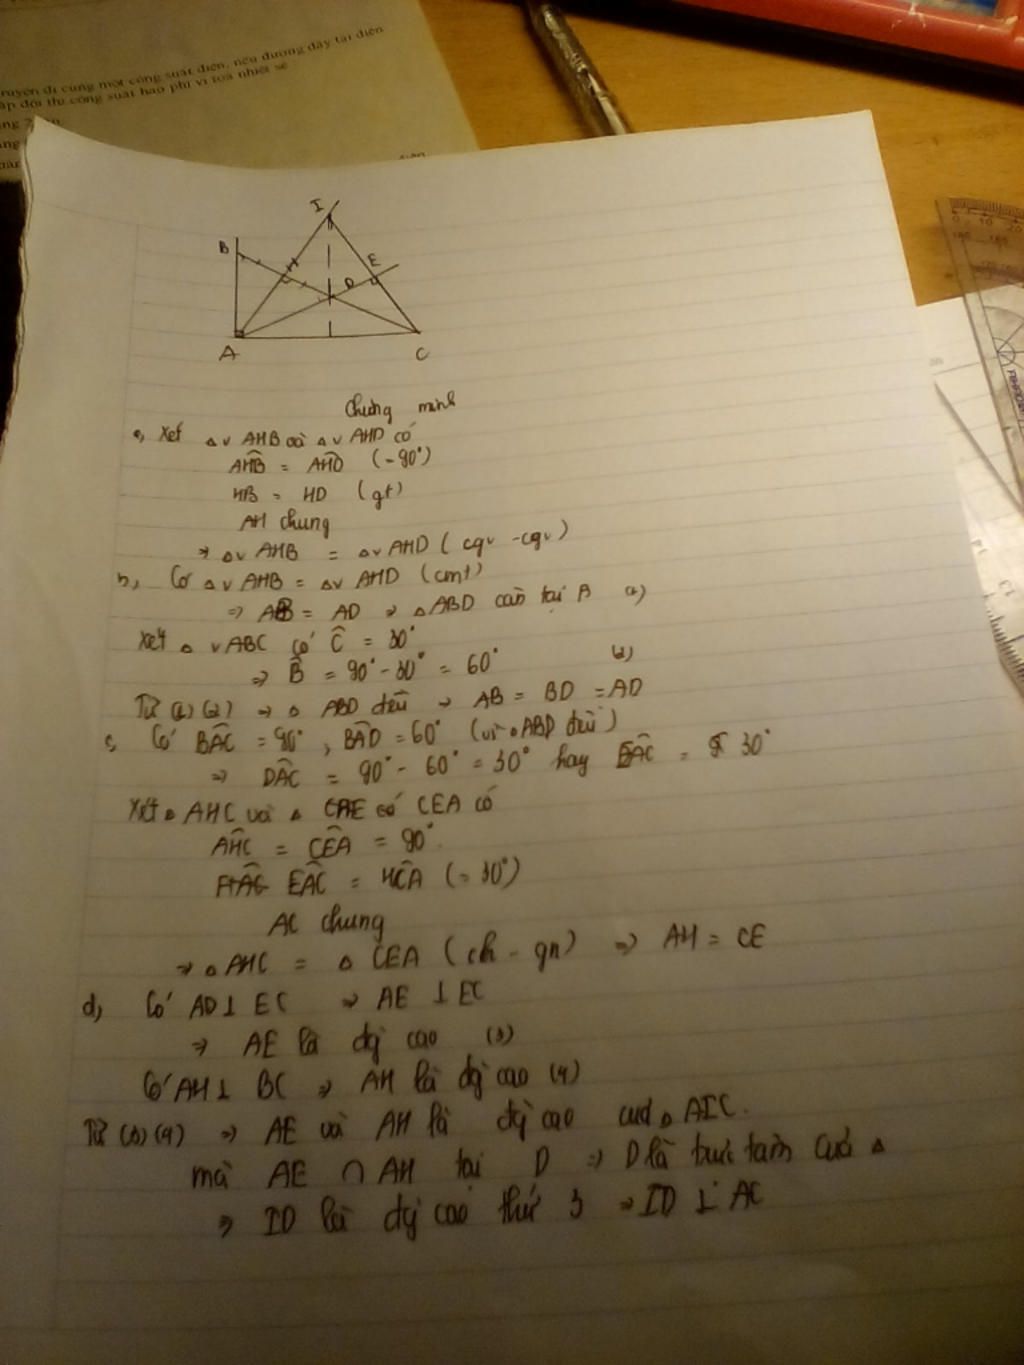 ruyện đi cùng một công suất điện, nếu đường dây tải điện
ấp đôi thì công suất hao phí vì toả nhiệt sẽ
I
B
H
E
D
A
C
Chứng minh
a, Xét △v AHB và △v AHD có
AHB = AHD (=90°)
HB = HD (gt)
AH chung
=> △v AHB = △v AHD (cgv - cgv)
b, Có △v AHB = △v AHD (cmt)
=> AB = AD => △ABD cân tại A (1)
Xét △vABC có Ĉ = 30°
=> B̂ = 90° - 30° = 60° (2)
Từ (1) (2) => △ ABD đều => AB = BD = AD
c, Có BÂC = 90°, BÂD = 60° (vì △ABD đều)
=> DÂC = 90° - 60° = 30° hay EÂC = 30°
Xét △ AHC và △ CEA có
AHC = CEA = 90°
EÂC = HCA (= 30°)
AC chung
=> △ AHC = △ CEA (ch - gn) => AH = CE
d, Có AD ⊥ EC => AE ⊥ EC
=> AE là đg cao (3)
Có AH ⊥ BC => AH là đg cao (4)
Từ (3) (4) => AE và AH là đg cao của △ AIC.
mà AE ∩ AH tại D => D là trực tâm của △
=> ID là đg cao thứ 3 => ID ⊥ AC